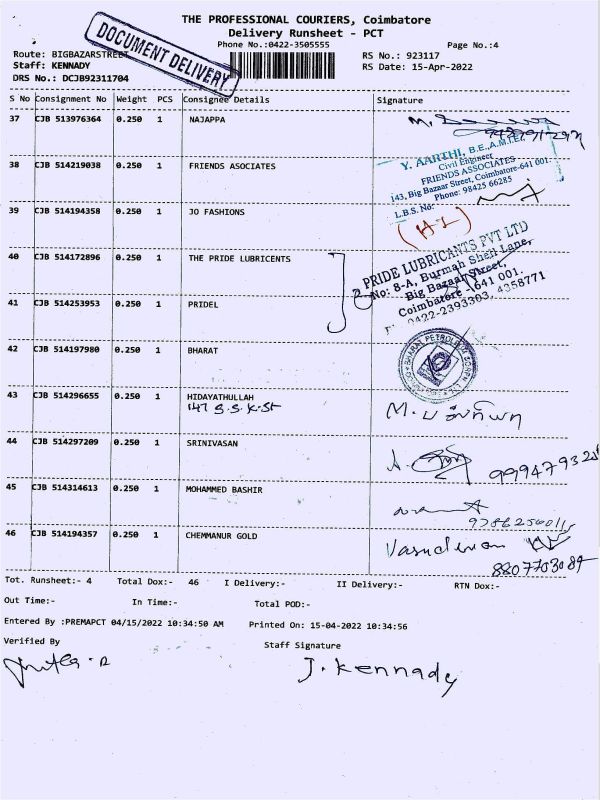 THE PROFESSIONAL COURIERS, Coimbatore
Delivery Runsheet - PCT
Phone No.:0422-3505555
Page No.:4
DOCUMENT DELIVERY
Route: BIGBAZARSTREET
RS No.: 923117
Staff: KENNADY
RS Date: 15-Apr-2022
DRS No.: DCJB92311704
S No Consignment No Weight PCS Consignee Details Signature
37 CJB 513976364 0.250 1 NAJAPPA
38 CJB 514219038 0.250 1 FRIENDS ASOCIATES
Y. AARTHI, B.E.,A.M.I.E.,
Civil Engineer
FRIENDS ASSOCIATES
143, Big Bazaar Street, Coimbatore-641 001.
Phone: 98425 66285
L.B.S. No:
39 CJB 514194358 0.250 1 JO FASHIONS
40 CJB 514172896 0.250 1 THE PRIDE LUBRICENTS
PRIDE LUBRICANTS PVT LTD
No: 8-A, Burmah Shell Lane,
Big Bazaar Street,
Coimbatore - 641 001.
0422-2393303, 4358771
41 CJB 514253953 0.250 1 PRIDEL
42 CJB 514197980 0.250 1 BHARAT
43 CJB 514296655 0.250 1 HIDAYATHULLAH
147 S.S.K.St
44 CJB 514297209 0.250 1 SRINIVASAN
45 CJB 514314613 0.250 1 MOHAMMED BASHIR
46 CJB 514194357 0.250 1 CHEMMANUR GOLD
Vasudevan
8807703084
Tot. Runsheet:- 4 Total Dox:- 46 I Delivery:- II Delivery:- RTN Dox:-
Out Time:- In Time:- Total POD:-
Entered By :PREMAPCT 04/15/2022 10:34:50 AM Printed On: 15-04-2022 10:34:56
Verified By Staff Signature
J. Kennady